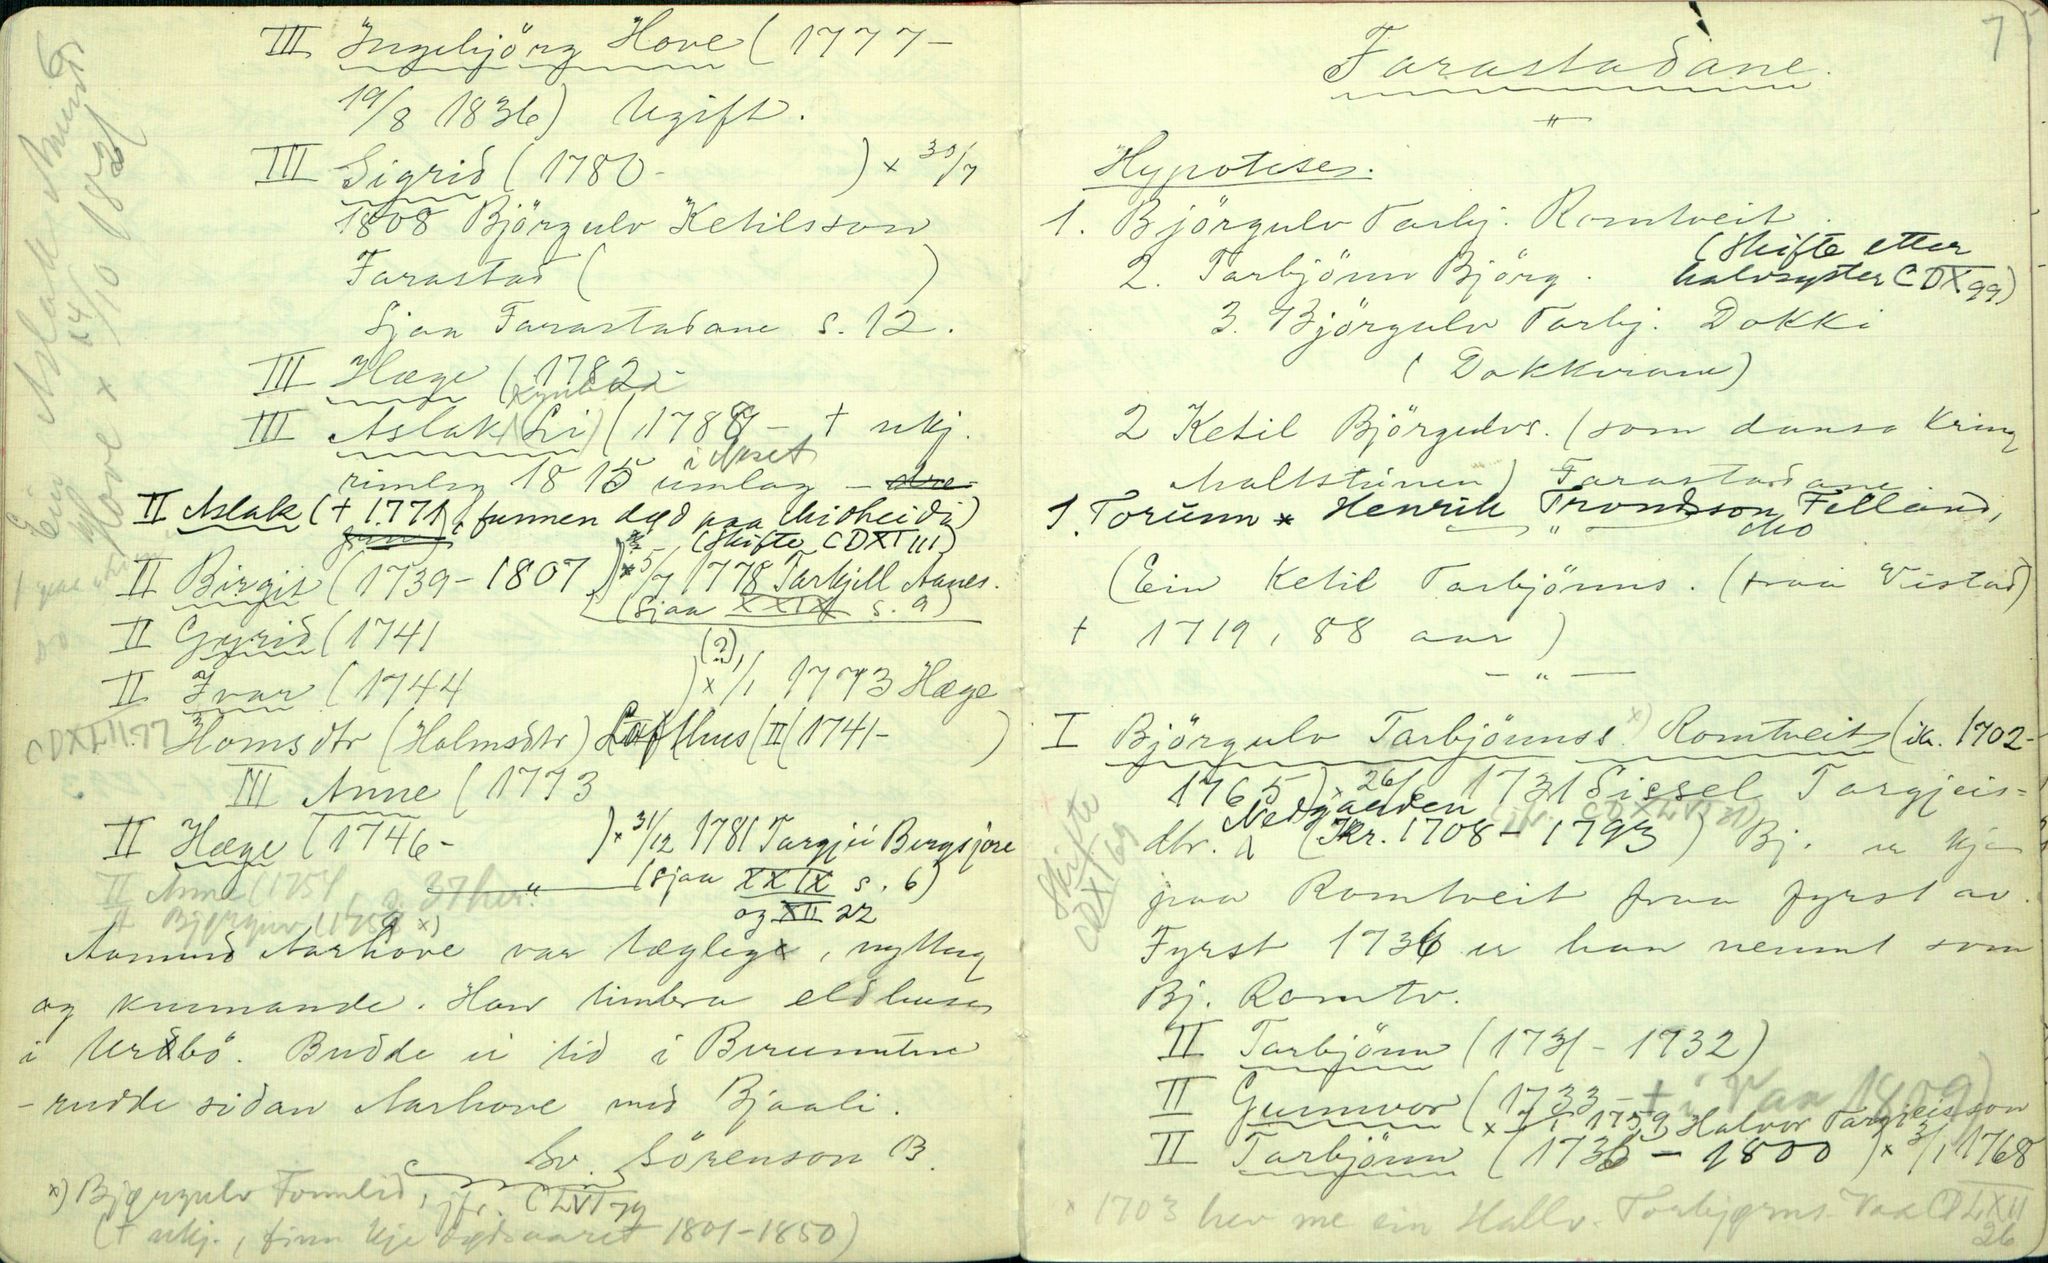 6
III Ingebjörg Hove (1777-
19/8 1836) Ugift.
III Sigrid (1780- ) x 30/7
1808 Björgulv Ketilsson
Farastad ( )
Sjaa Farastadane s. 12.
III Hæge (1782-
III Aslak (Li) (1788- † ukj.
i Næset
1815 umlag -
II Aslak (+ 1771, funnen dæd paa
(Skifte CDXI 111)
II Birgit (1739-1807) x 5/7 1778 Tarkjell Aanes.
(Sjaa XXIX s. 9)
II Gyrid (1741
II Ivar (1744 ) (?) x 1/1 1773 Hæge
CDXLII 77 Homsdtr (Holmsdtr) Lofthus (II (1741- )
III Anne (1773
II Hæge (1746- ) x 31/12 1781 Targjei Bergsjöre
(Sjaa XXIX s. 6)
og XII 22
II Anne (1754
Aamund Aarhove var læglege, nyttug
og kunnande. Han timbra eldhuset
i Urdbö. Budde ei tid i
- rudde sidan Aarhove med Bjaali.
Sv. Sörenson B.
x) Bjørgulv Tommlid, jfr. CLVI 79
(† ukj., finn ikje dødsaaret 1801-1850)
Ein Aslak Aamunds.
Hove x 14/10
7
Farastadane.
"
Hypoteser.
1. Björgulv Tarbj. Romtveit.
(Skifte etter
2. Tarbjönn Björg. halvsyster CDXI 99)
3. Björgulv Tarbj. Dokki
(Dokkvrane)
2 Ketil Björgulvs. (som dansa kring
maltstuven) Farastadane
1. Torunn x Henrik Trondsson Felland,
"
(Ein Ketil Tarbjönns. (fraa Vistad)
+ 1719, 88 aar)
- " -
I Björgulv Tarbjönnss. x) Romtveit (ik. 1702-
1765) x 26/6 1731 Sissel Targjeis-
Nedgarden
dtr. (Kr. 1708-1793) Bj. er ikje
paa Romtveit fraa fyrst av.
Fyrst 1736 er han nemnt som
Bj. Romtv.
Skifte
CDXI 69
II Tarbjönn (1731-1732)
II Gunnvor (1733- † i Vaa 1809)
x 1759 Halvor Targjeisson
II Tarbjönn (1736-1800) x 3/1 1768
x 1703 hev me ein Hallv. Torbjørns. Vaa CDLXII
26